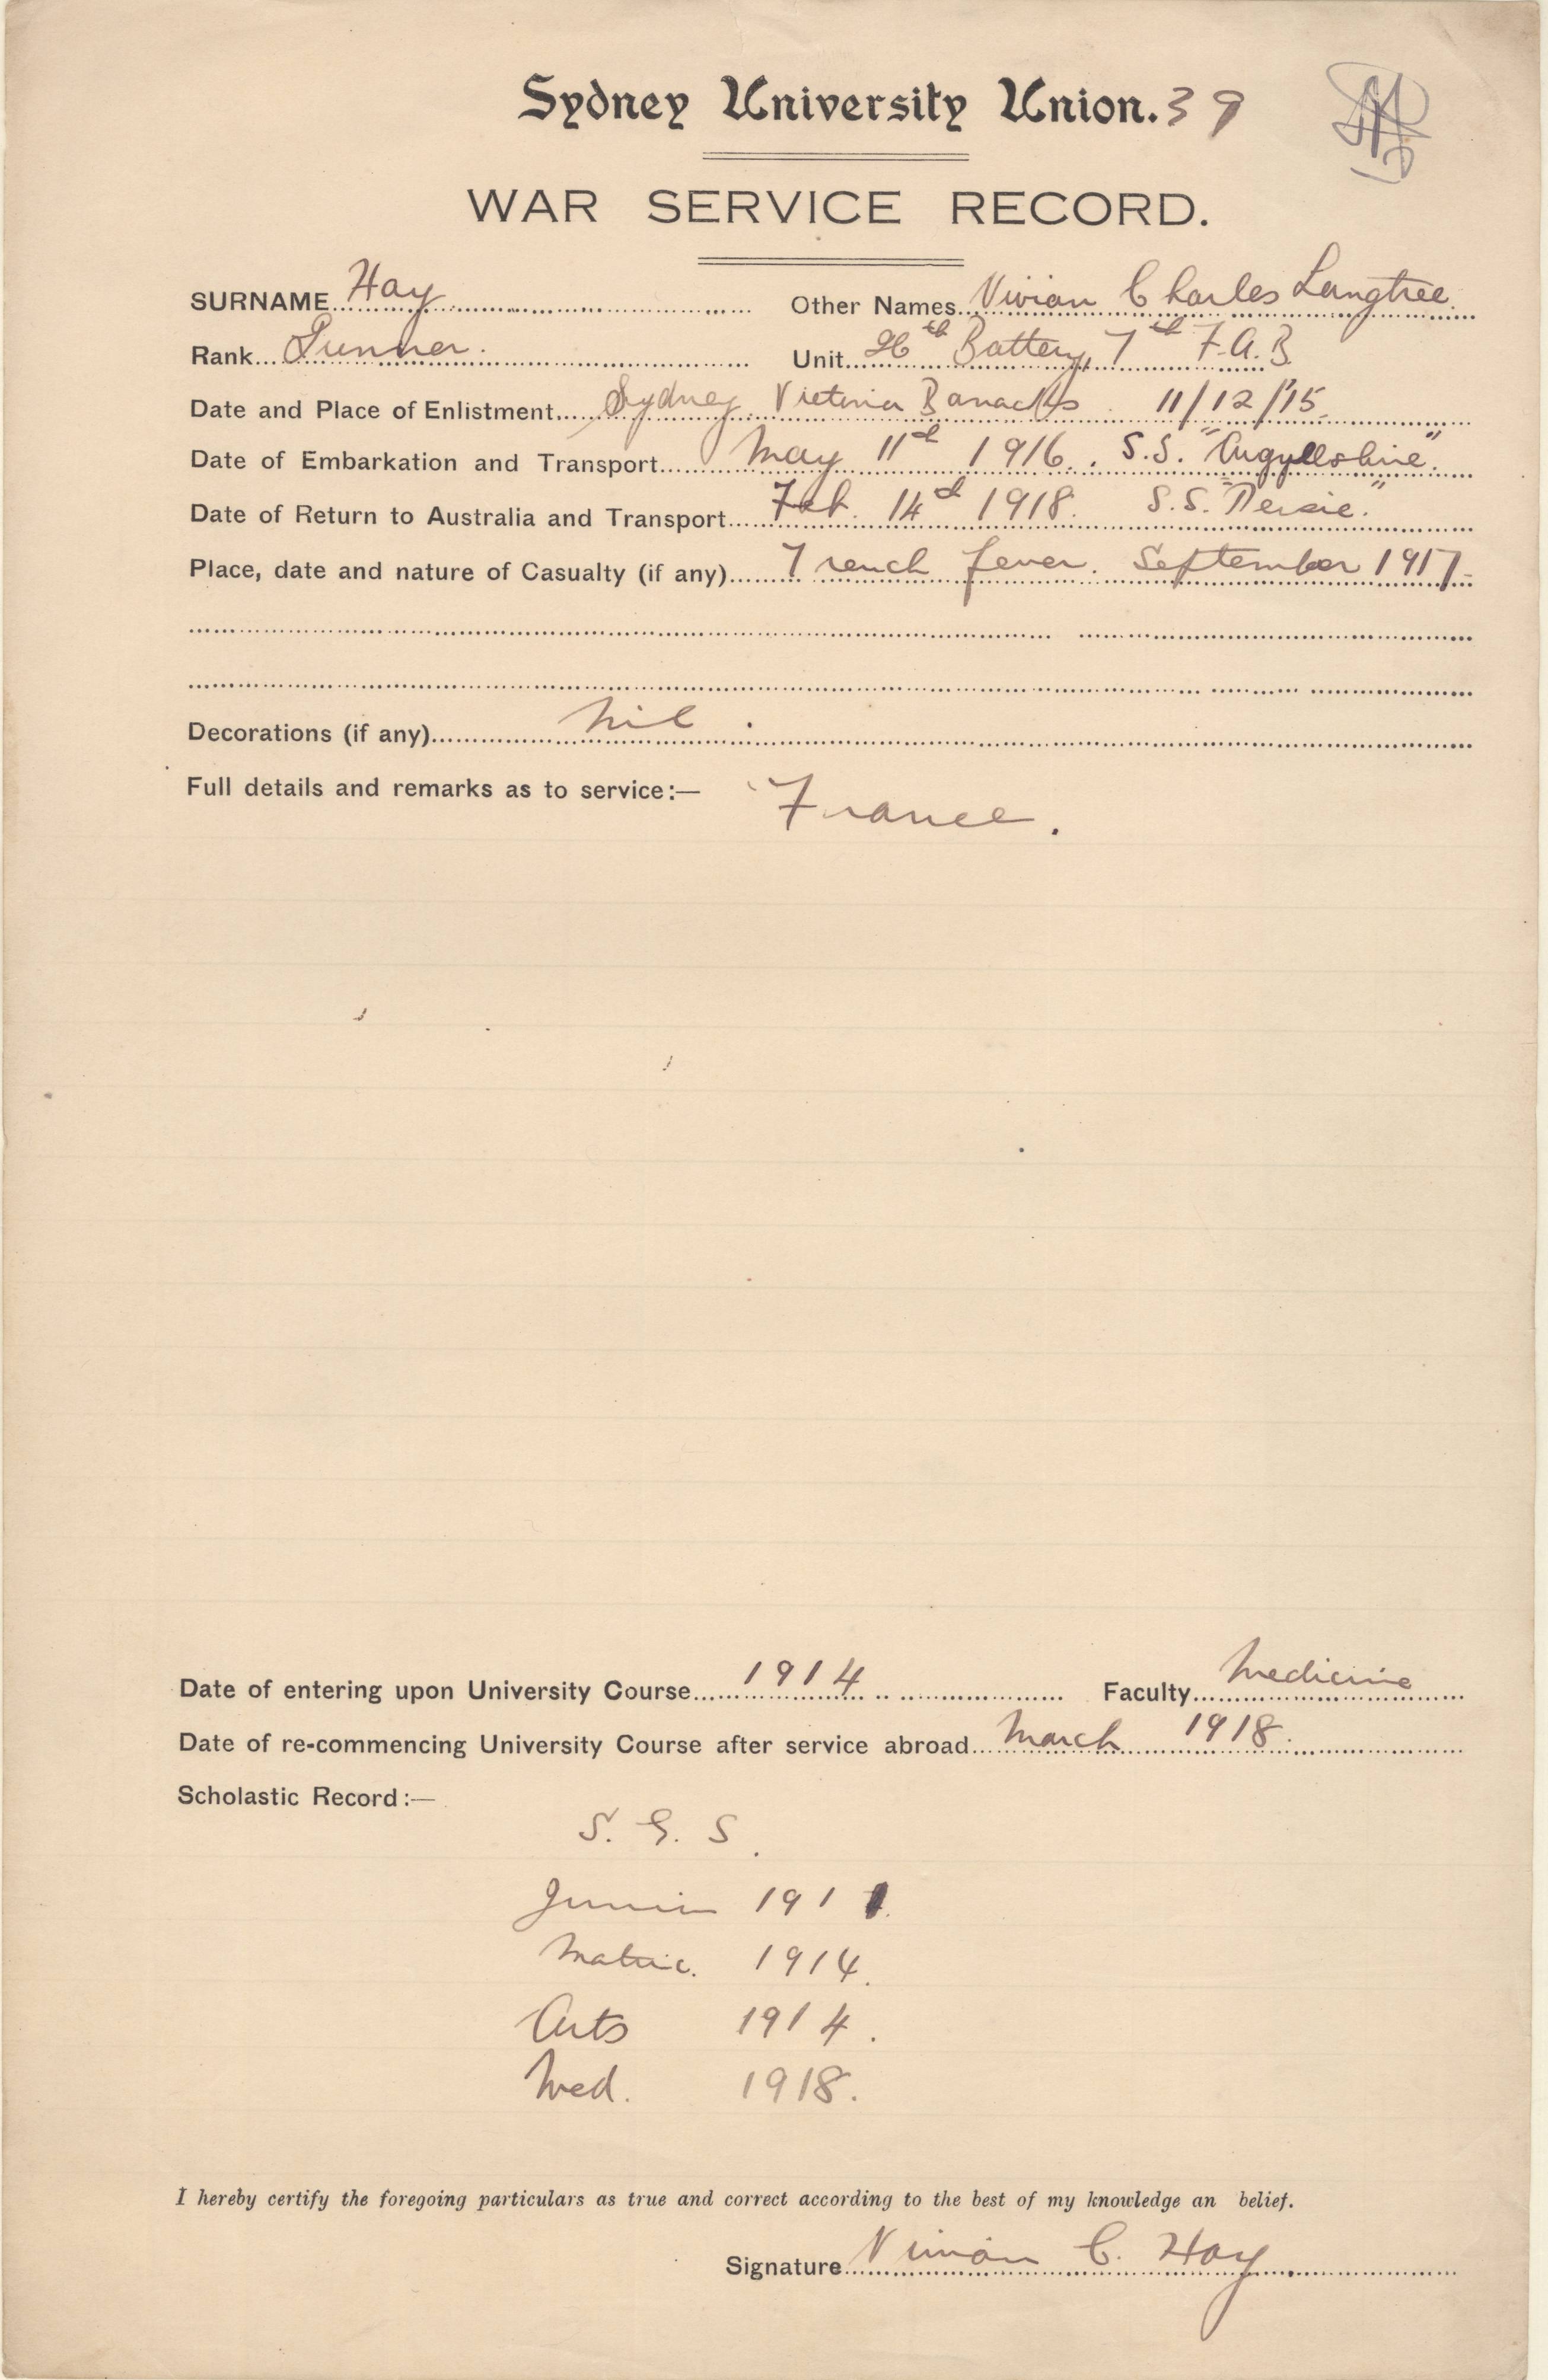 Sydney University Union. 39
WAR SERVICE RECORD.
SURNAME Hay Other Names Vivian Charles Langtree.
Rank Gunner. Unit 26th Battery, 7th F.A.B.
Date and Place of Enlistment Sydney Victoria Barracks 11/12/'15.
Date of Embarkation and Transport May 11th 1916. S.S. "Argyllshire".
Date of Return to Australia and Transport Feb. 14th 1918. S.S. "Persic."
Place, date and nature of Casualty (if any) Trench fever. September 1917.
Decorations (if any) Nil.
Full details and remarks as to service:— France.
Date of entering upon University Course 1914 Faculty Medicine
Date of re-commencing University Course after service abroad March 1918.
Scholastic Record:—
S. G. S.
Junior 1911.
Matric. 1914.
Arts 1914.
Med. 1918.
I hereby certify the foregoing particulars as true and correct according to the best of my knowledge an belief.
Signature Vivian C. Hay